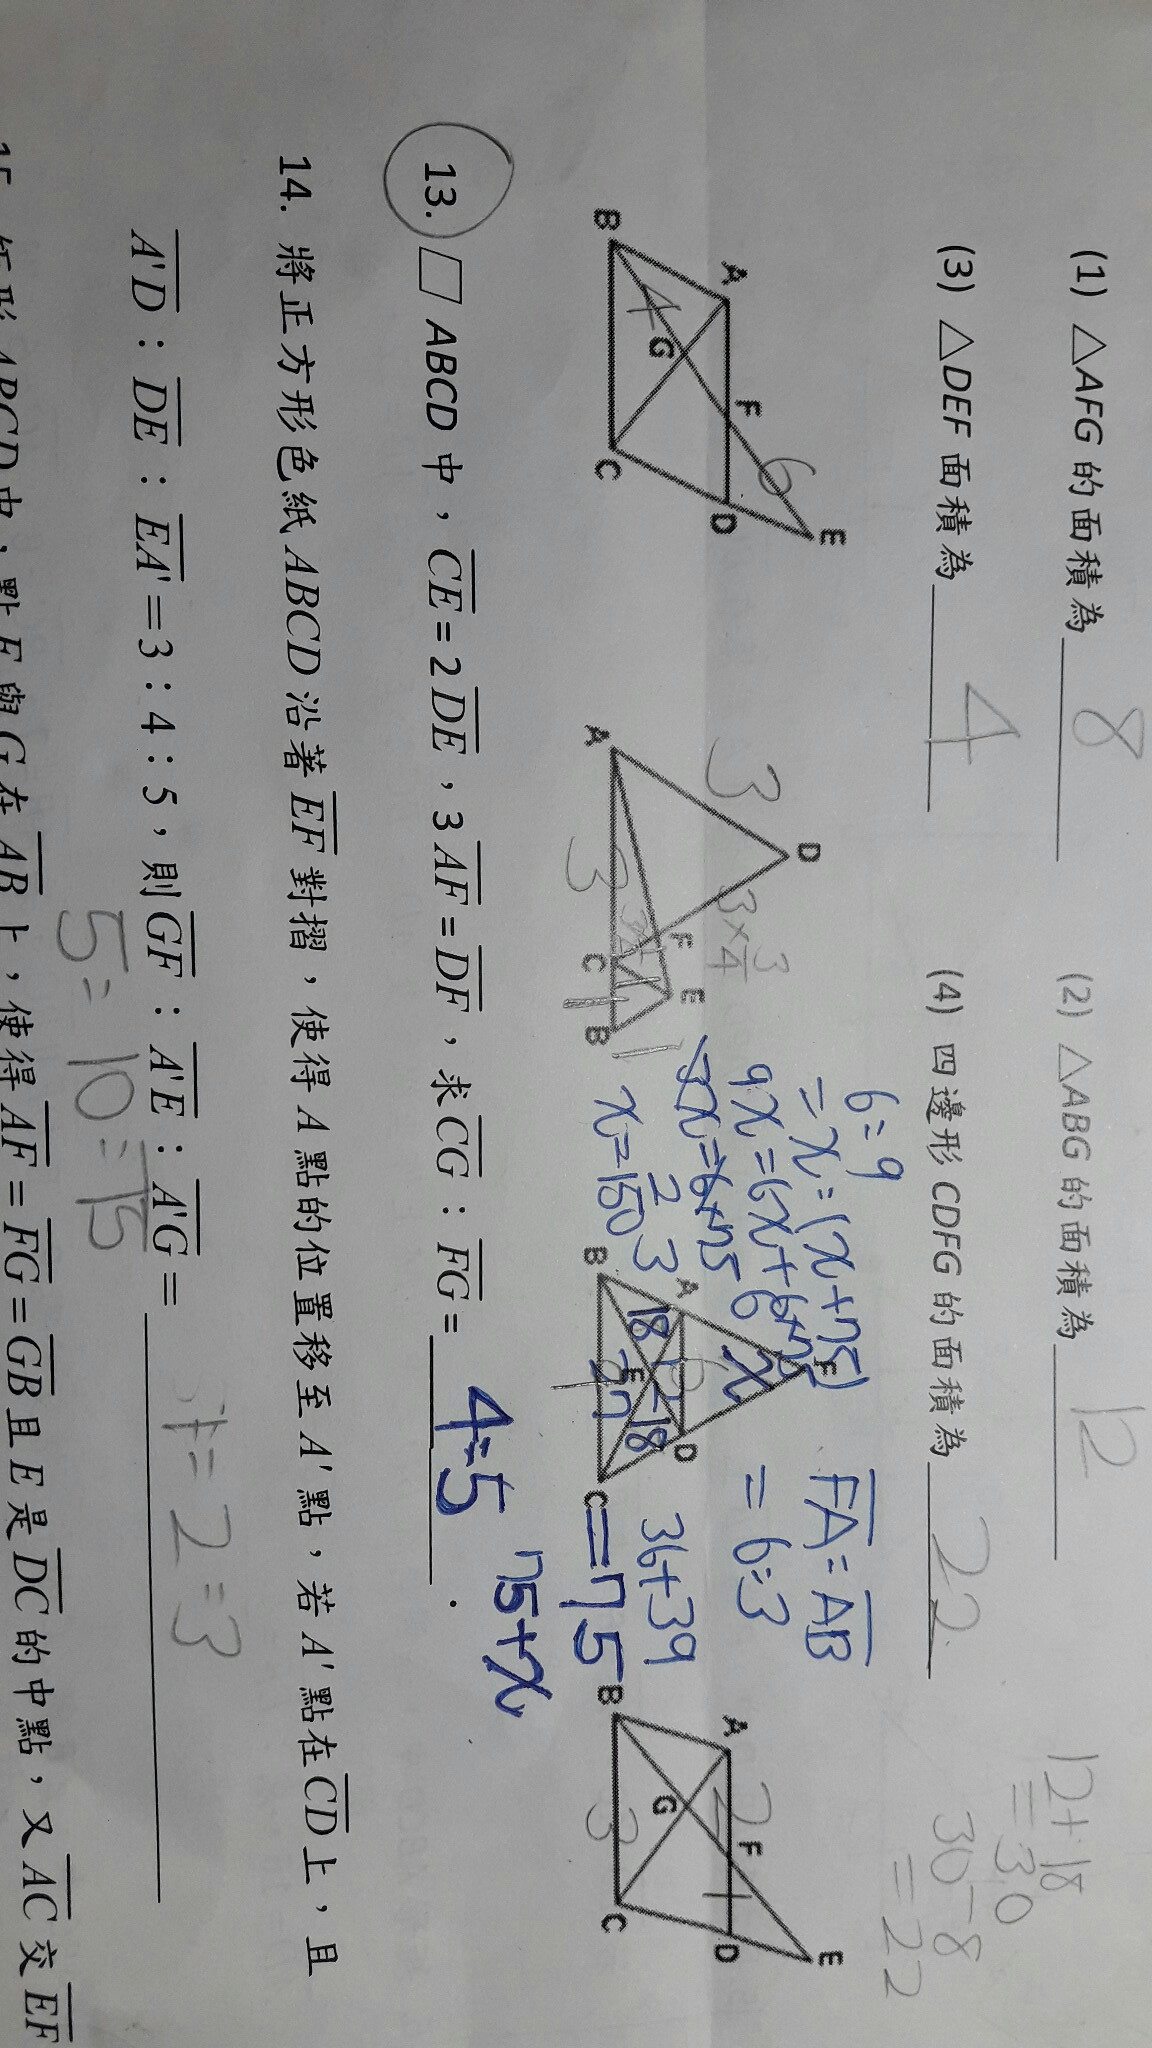 (1) △AFG 的面積為 8
(2) △ABG 的面積為 12
12+18
=30
(3) △DEF 面積為 4
(4) 四邊形 CDFG 的面積為 22
30-8
=22
A F E D B G C 4 6
D A F E C B 3 3 1 1
6:9
=x:(x+75)
9x=6x+6×75
x=150
F A D B E C 6 3 x 18 12 18 27
FA:AB
=6:3
36+39
=75
75+x
A F E D B G C 2 1 3
13. ▱ABCD 中,CE=2DE,3AF=DF,求 CG:FG= 4:5 .
14. 將正方形色紙 ABCD 沿著 EF 對摺,使得 A 點的位置移至 A' 點,若 A' 點在 CD 上,且
A'D:DE:EA'=3:4:5,則 GF:A'E:A'G=
1:2:3
5:10:15
15. 矩形 ABCD 中,點 F 與 G 在 AB 上,使得 AF=FG=GB 且 E 是 DC 的中點,又 AC 交 EF